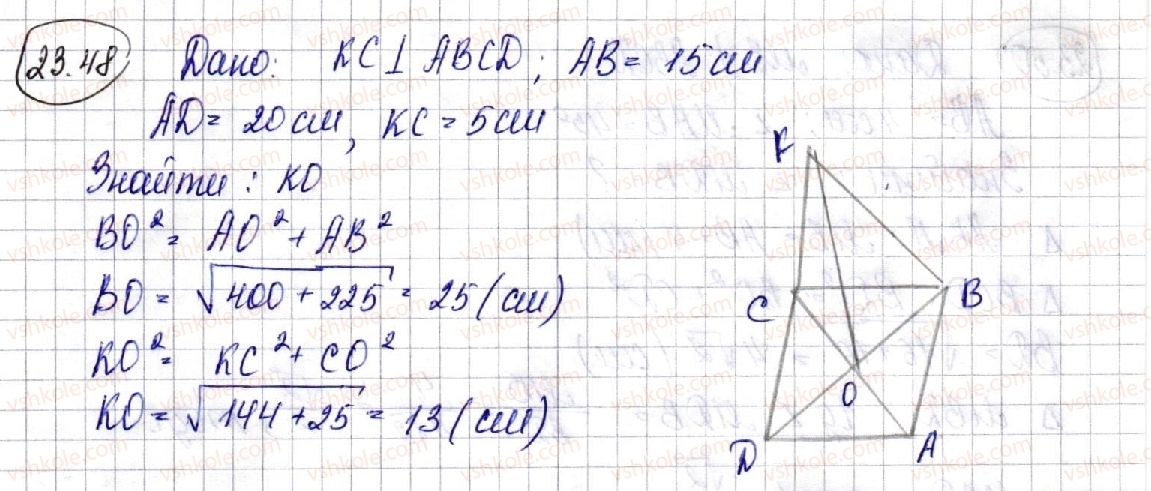 23.48 Дано: KC⊥ABCD; AB = 15 см
AD = 20 см, KC = 5 см
Знайти: KO
BO² = AO² + AB²
BO = √400 + 225 = 25 (см)
KO² = KC² + CO²
KO = √144 + 25 = 13 (см)
K
C
B
O
D
A